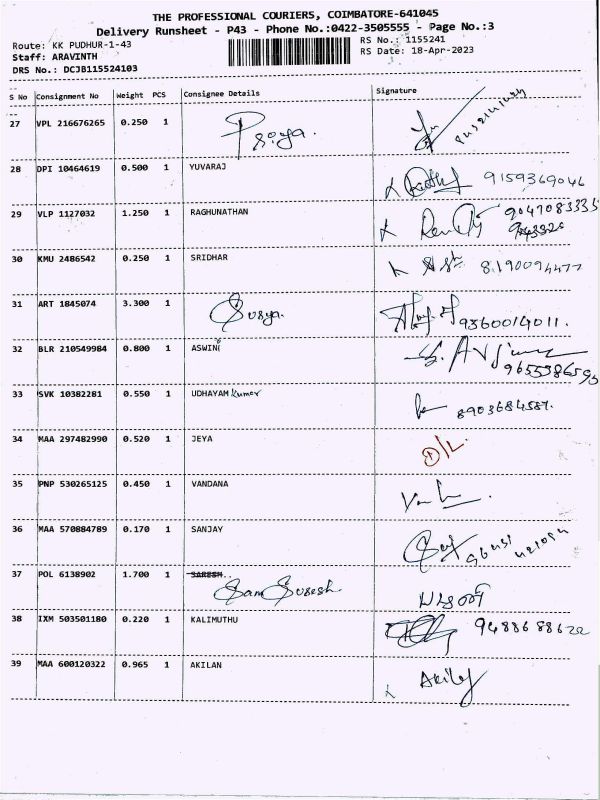 THE PROFESSIONAL COURIERS, COIMBATORE-641045
Delivery Runsheet - P43 - Phone No.:0422-3505555 - Page No.:3
Route: KK PUDHUR-1-43 RS No.: 1155241
Staff: ARAVINTH RS Date: 18-Apr-2023
DRS No.: DCJB115524103
S No Consignment No Weight PCS Consignee Details Signature
27 VPL 216676265 0.250 1 Priya.
28 DPI 10464619 0.500 1 YUVARAJ 9159369046
29 VLP 1127032 1.250 1 RAGHUNATHAN 9047083335
30 KMU 2486542 0.250 1 SRIDHAR 8190094477
31 ART 1845074 3.300 1 Surya. 9360014011.
32 BLR 210549984 0.800 1 ASWINI 9655586595
33 SVK 10382281 0.550 1 UDHAYAM kumar 8903684587.
34 MAA 297482990 0.520 1 JEYA D/L.
35 PNP 530265125 0.450 1 VANDANA
36 MAA 570884789 0.170 1 SANJAY
37 POL 6138902 1.700 1 SARESH..
Sam Suresh
38 IXM 503501180 0.220 1 KALIMUTHU 9488688622
39 MAA 600120322 0.965 1 AKILAN Akilan